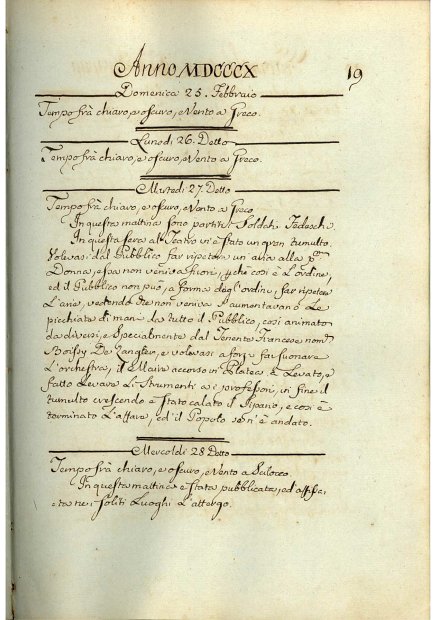 Anno MDCCCX
19
Domenica 25. Febbraio
Tempo frà chiaro, e oscuro, e Vento a Greco.
Lunedì 26. Detto
Tempo frà chiaro, e oscuro, e Vento a Greco.
Martedì 27. Detto
Tempo frà chiaro, e oscuro, e Vento a Greco
In questa mattina sono partiti i Soldati Tedeschi.
In questa sera al Teatro vi è stato un gran tumulto.
Volevasi dal Pubblico far ripetere un aria alla p.ma
Donna, essa non veniva fuori, perche così è L'ordine,
ed il Pubblico non può, a forma degl'ordini, far ripetere
L'arie, vedendo che non veniva aumentavano Le
picchiate di mani da tutto il Pubblico, così animato
da diversi, e Specialmente dal Tenente Francese nom.
Boissy De, e volevasi a forza far suonare
L'orchestra, il Maire accorso in Platea à Levato, e
fatto Levare Li Strumenti a i professori, in fine il
tumulto crescendo è stato calato il Sipario, e così è
terminato L'affare, ed il Popolo se n'è andato.
Mercoldì 28 Detto
Tempo frà chiaro, e oscuro, e Vento a Scilocco.
In questa mattina è stata pubblicata, ed affis-
sata ne i soliti Luoghi L'